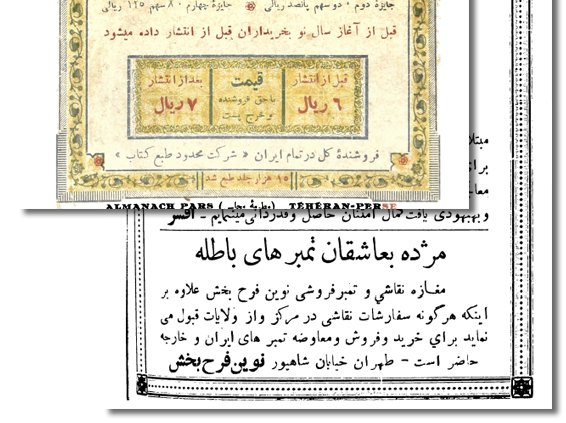 جایزهٔ دوم ۰ دو سهم پانصد ریالی ❁ جایزهٔ چهارم ۸۰ سهم ۱۲۵ ریالی
قبل از آغاز سال نو بخریداران قبل از انتشار داده میشود
قبل از انتشار
۶ ریال
قیمت
با حق فروشنده
و خرج پست
بعد از انتشار
۷ ریال
فروشندهٔ کل در تمام ایران « شرکت محدود طبع کتاب »
۸۵ هزار جلد طبع شد
ALMANACH PARS ( ) TÉHÉRAN-PERSE
مبتلا
برای
معا
و بهبودی یافت کمال امتنان حاصل و قدردانی مینمایم - افسر
مژده بعاشقان تمبر های باطله
مغازه نقاشی و تمبرفروشی نوین فرح بخش علاوه بر
اینکه هرگونه سفارشات نقاشی در مرکز و از ولایات قبول می
نماید برای خرید و فروش و معاوضه تمبر های ایران و خارجه
حاضر است - طهران خیابان شاهپور نوین فرح بخش